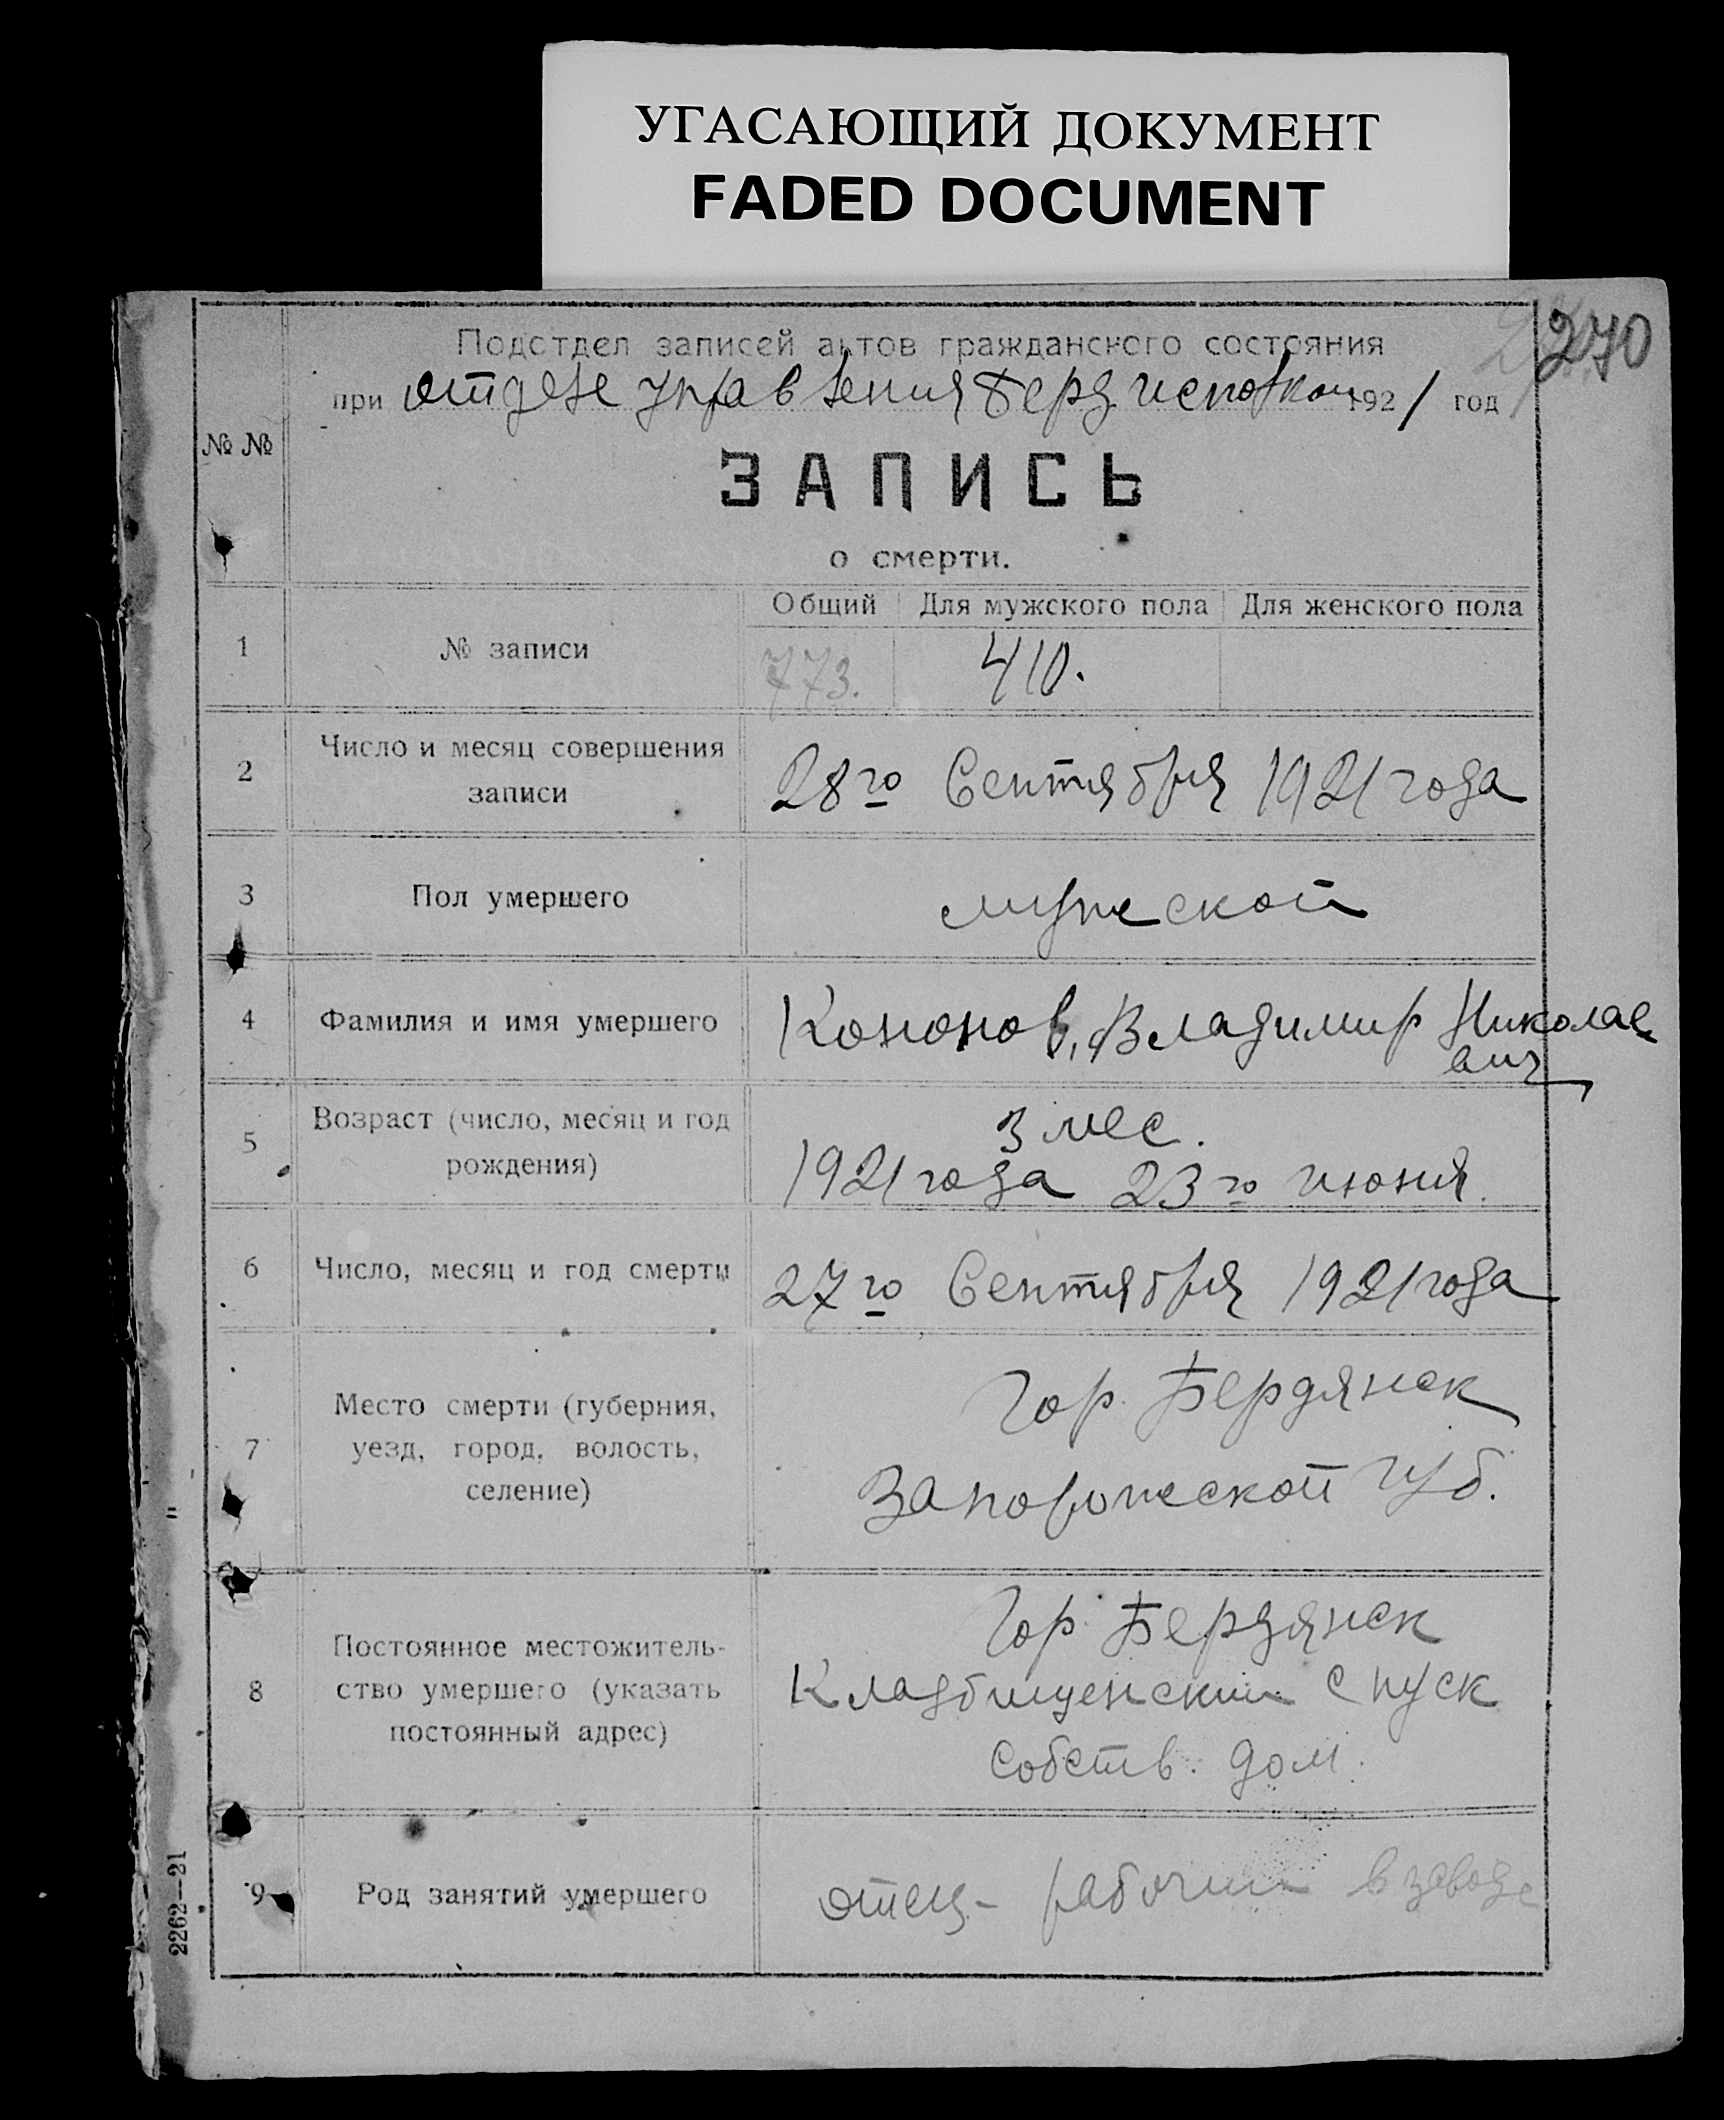 УГАСАЮЩИЙ ДОКУМЕНТ
FADED DOCUMENT
270
Подотдел записей актов гражданского состояния
при отделе управления Берд исполком 1921 год
№ №
ЗАПИСЬ
о смерти.
Общий Для мужского пола Для женского пола
1 № записи 773. 410.
2 Число и месяц совершения
записи
28го Сентября 1921 года
3 Пол умершего мужской
4 Фамилия и имя умершего Кононов, Владимир Николае
вич
5 Возраст (число, месяц и год
рождения)
3 мес.
1921 года 23го июня.
6 Число, месяц и год смерти 27го Сентября 1921 года
7 Место смерти (губерния,
уезд, город, волость,
селение)
Гор. Бердянск
Запорожской губ.
8 Постоянное местожитель-
ство умершего (указать
постоянный адрес)
Гор. Бердянск
Кладбищенский спуск
собств. дом.
9 Род занятий умершего отец - рабочий в заводе
2262—21